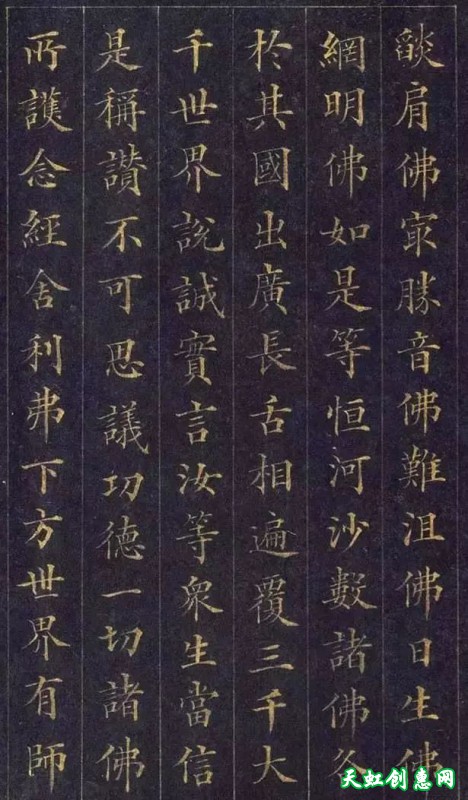 燄肩佛㝡勝音佛難沮佛日生佛
網明佛如是等恒河沙數諸佛各
於其國出廣長舌相遍覆三千大
千世界說誠實言汝等眾生當信
是稱讚不可思議功德一切諸佛
所護念經舍利弗下方世界有師
天虹创惠网